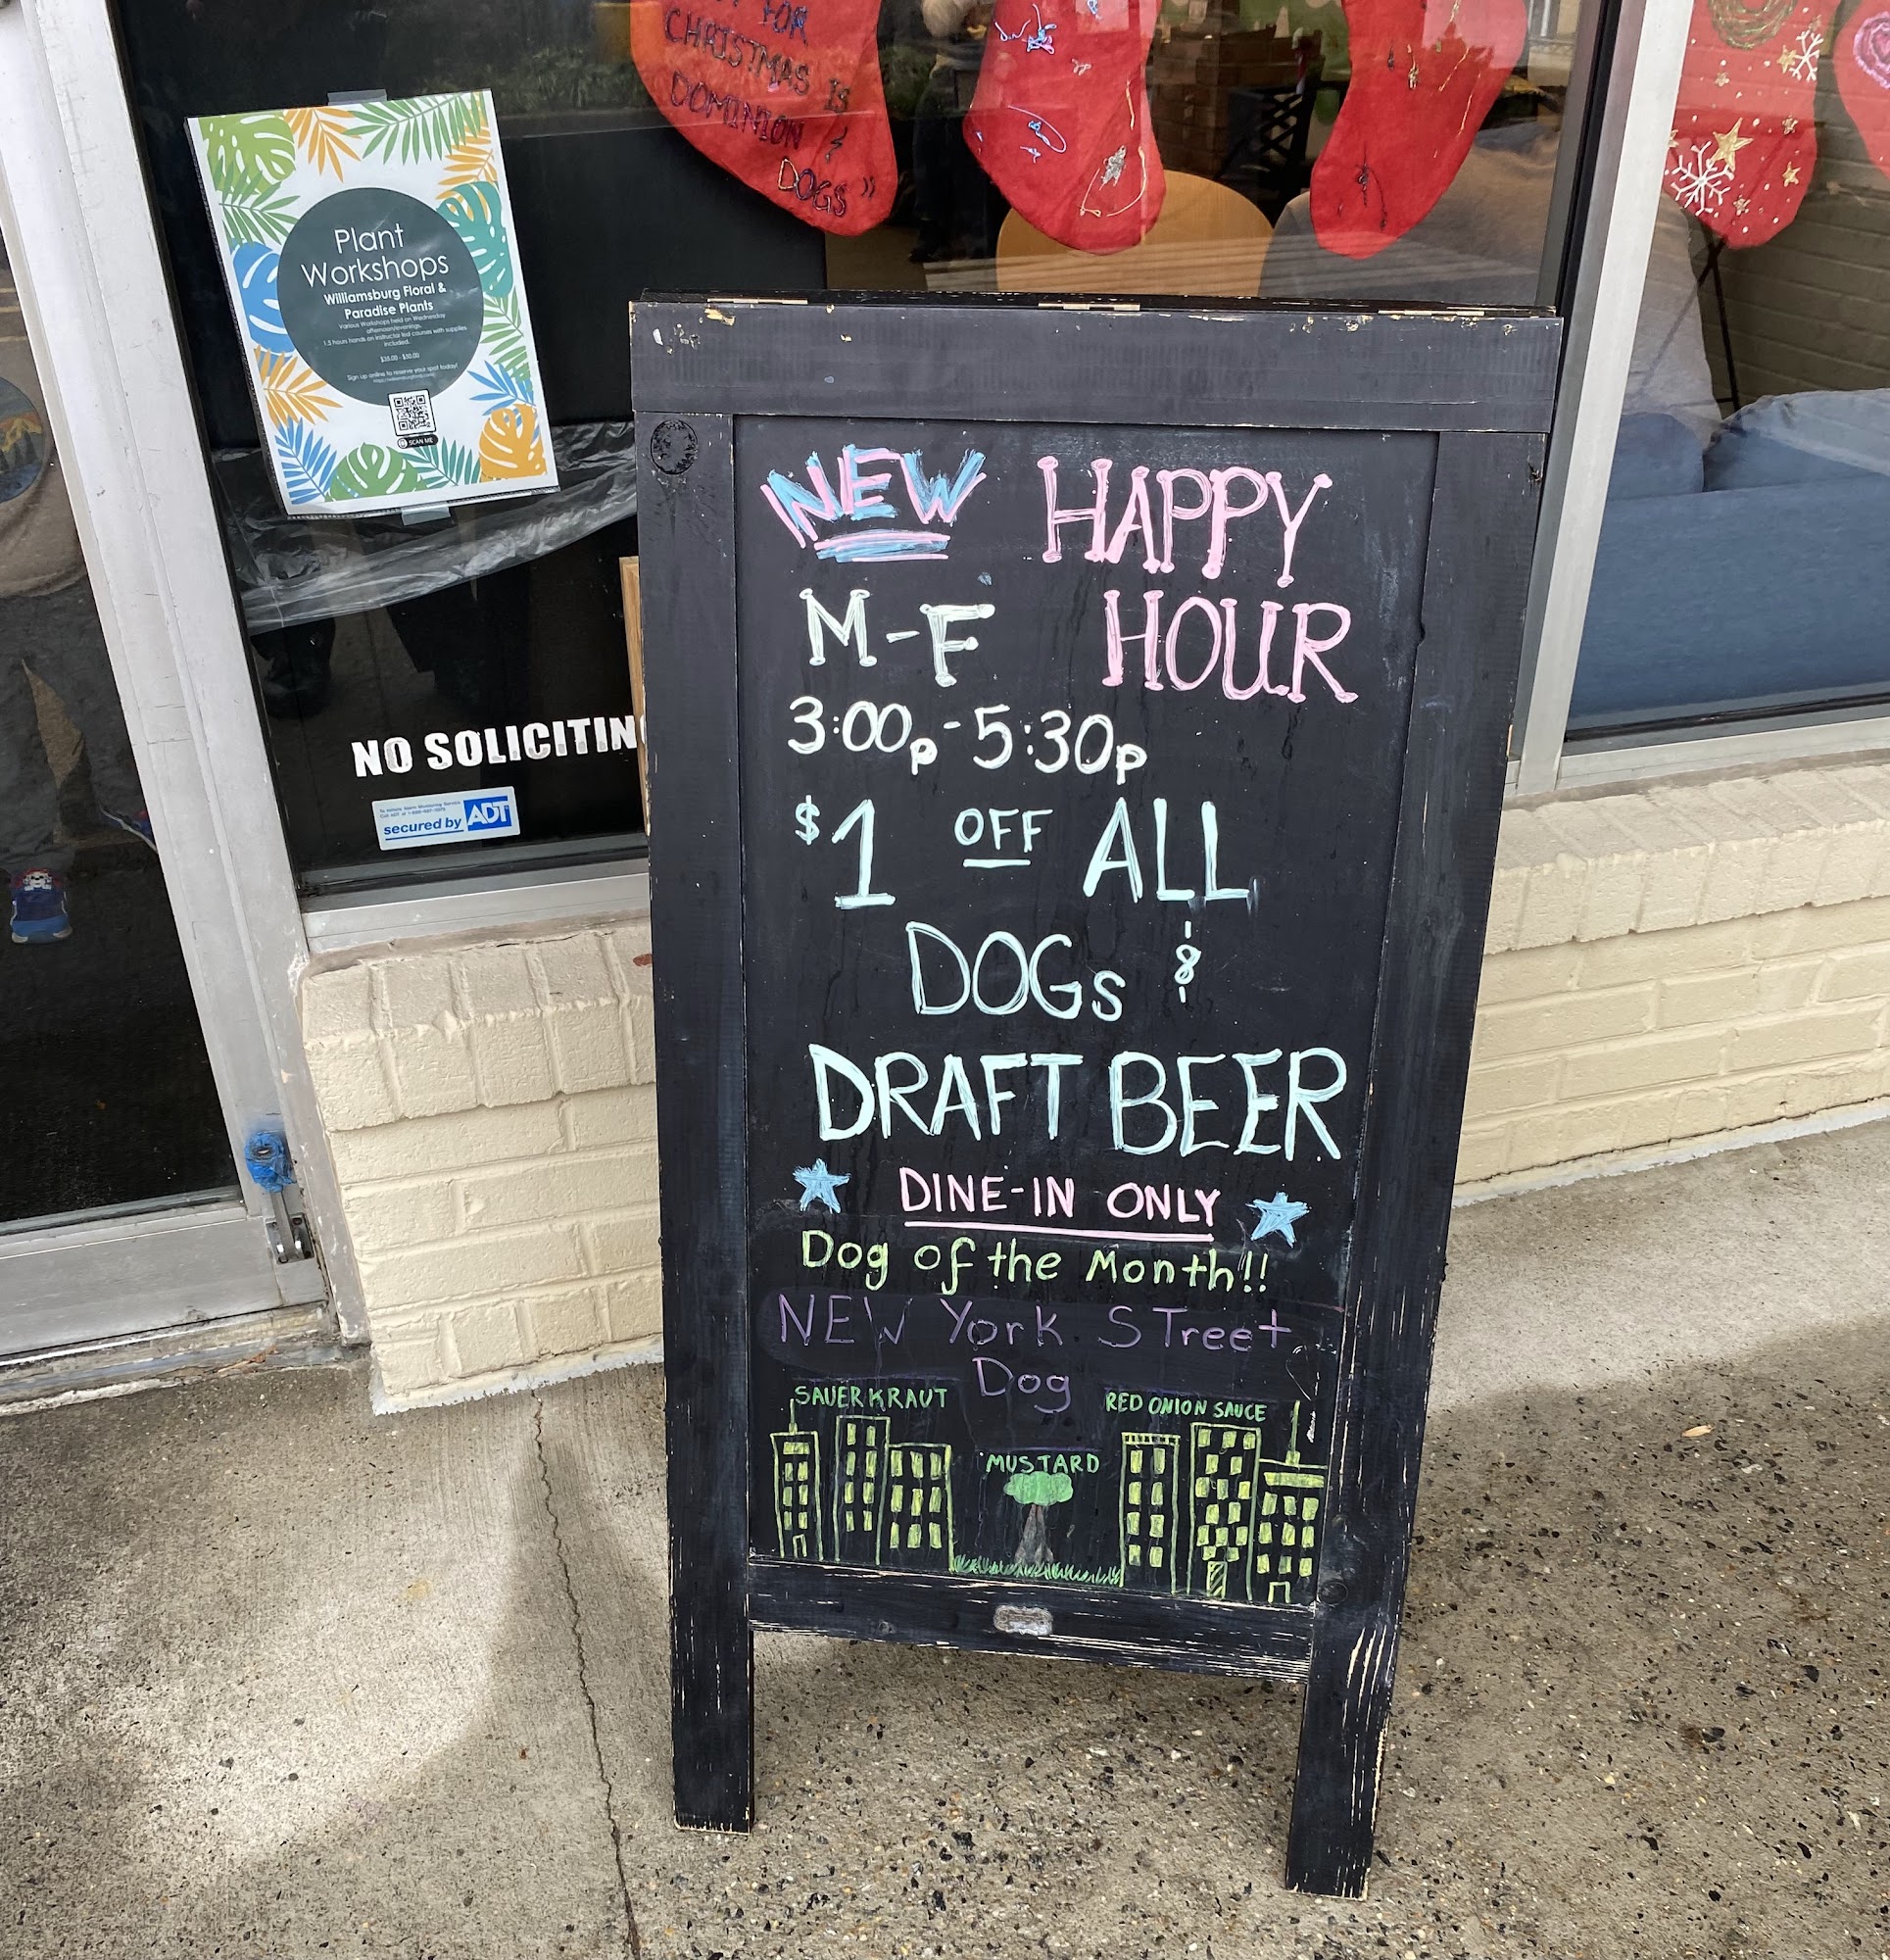 FOR
CHRISTMAS IS
DOMINION &
DOGS"
Plant
Workshops
Williamsburg Floral &
Paradise Plants
Various Workshops held on Wednesday
afternoon/evenings.
1.5 hours hands on instructor led courses with supplies
included.
$35.00 - $50.00
Sign up online to reserve your spot today!
SCAN ME
NO SOLICITIN
secured by ADT
NEW HAPPY
M-F HOUR
3:00p-5:30p
$1 OFF ALL
DOGs &
DRAFT BEER
DINE-IN ONLY
Dog of the Month!!
NEW York STreet
Dog
SAUERKRAUT
RED ONION SAUCE
MUSTARD